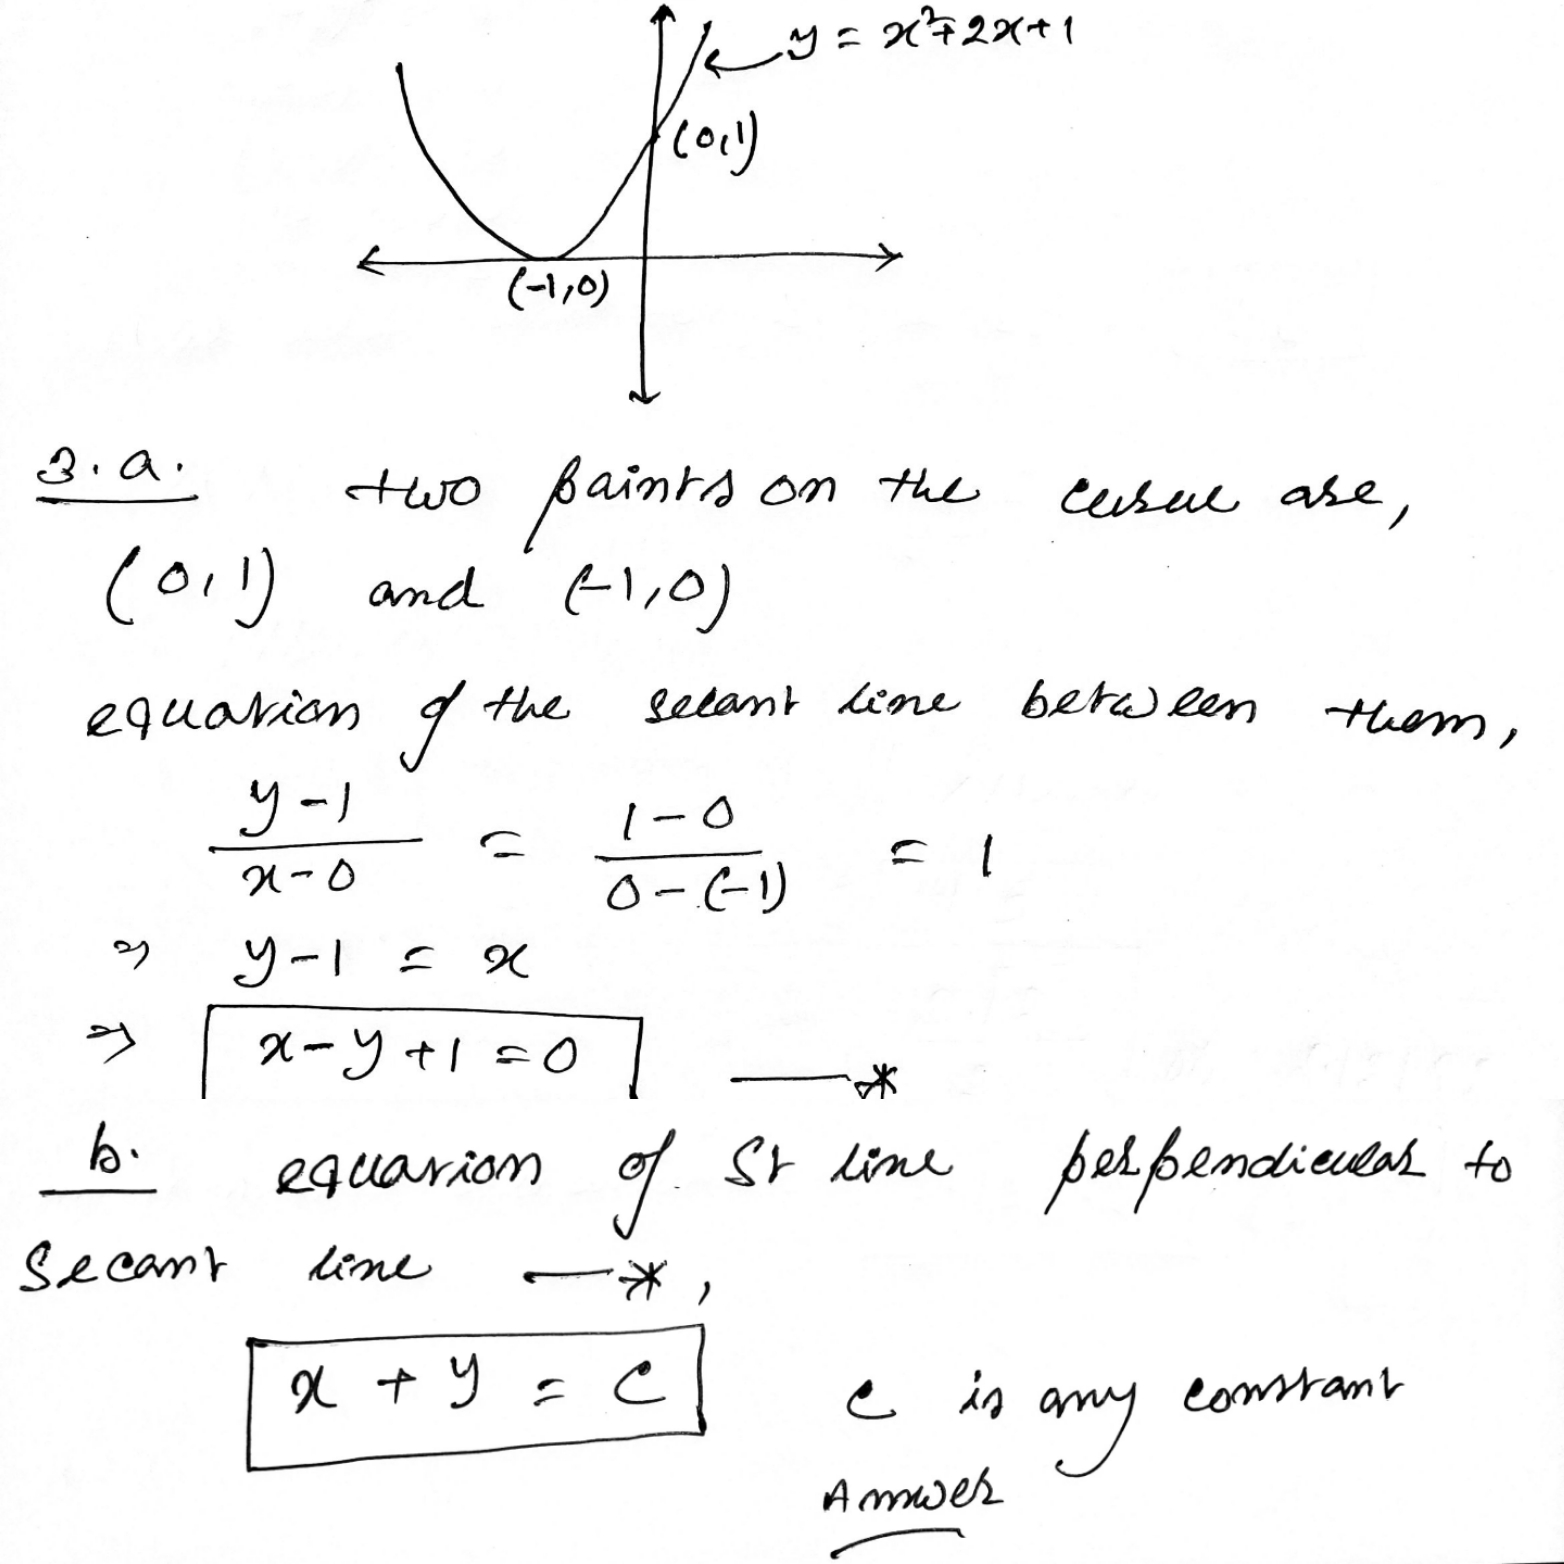 y = x²+2x+1
(0,1)
(-1,0)
3.a. two points on the curve are,
(0,1) and (-1,0)
equation of the secant line between them,
y-1 / x-0 = 1-0 / 0-(-1) = 1
⇒ y-1 = x
⇒ x-y+1=0 —*
b. equation of St line perpendicular to
Secant line —*,
x + y = c c is any constant
Answer